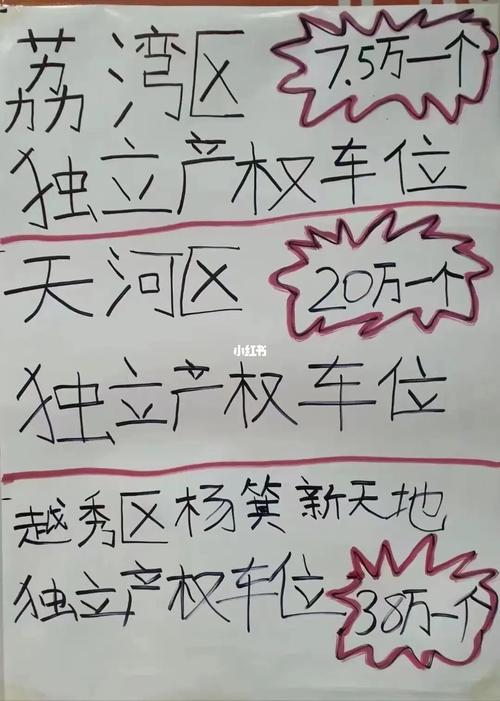 荔湾区 7.5万一个
独立产权车位
天河区 20万一个
小红书
独立产权车位
越秀区杨箕新天地
独立产权车位 38万一个